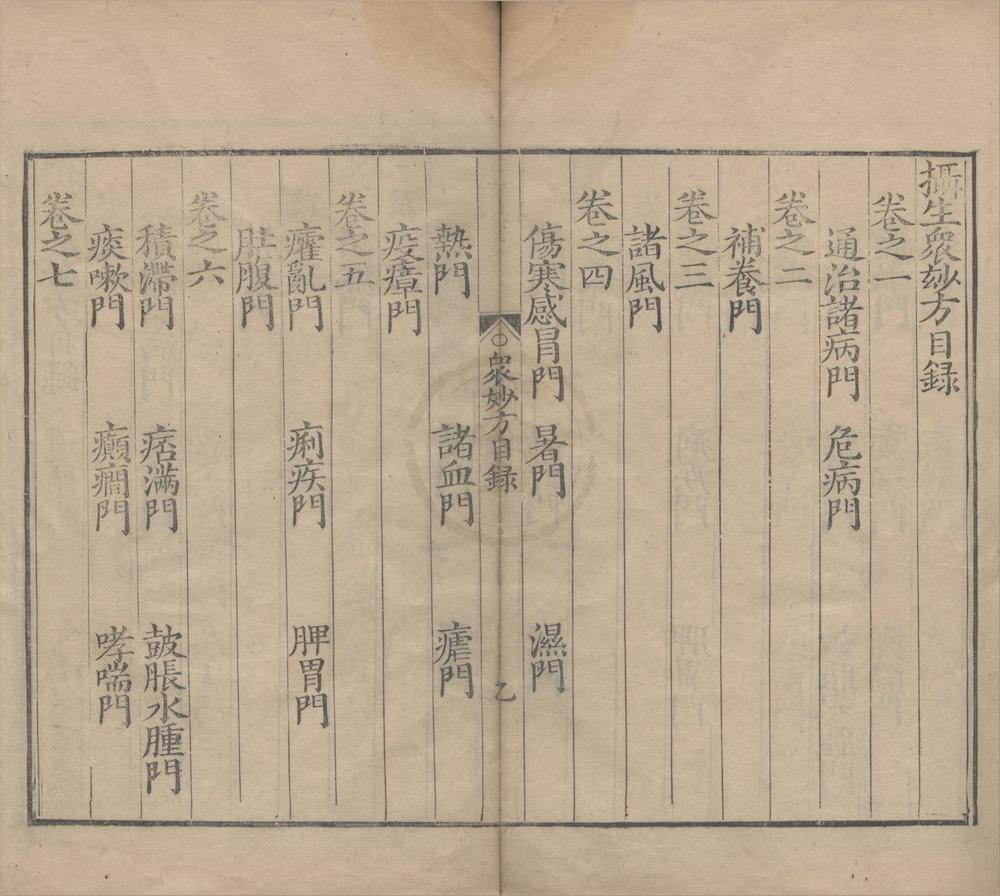 攝生衆妙方目録
卷之一
通治諸病門　危病門
卷之二
補養門
卷之三
諸風門
卷之四
傷寒感冒門　暑門　濕門
衆妙方目録　乙
熱門　諸血門　瘧門
疫瘴門
卷之五
癨亂門　痢疾門　脾胃門
肚腹門
卷之六
積滯門　痞滿門　鼓脹水腫門
痰嗽門　癲癎門　哮喘門
卷之七